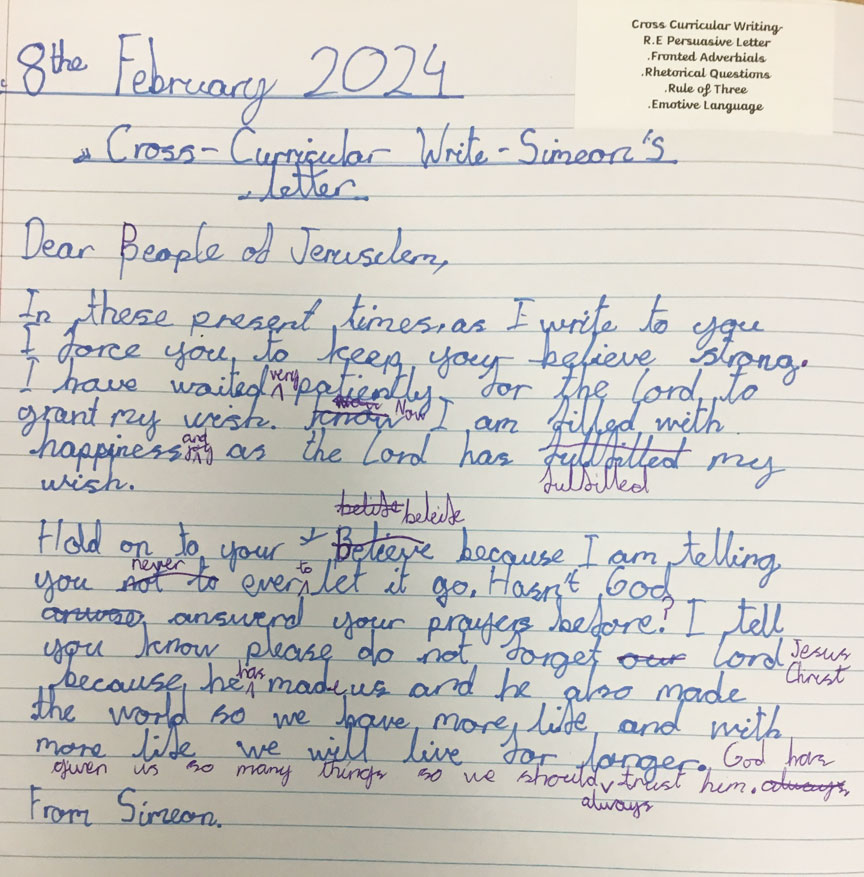 Cross Curricular Writing-
R.E Persuasive Letter
.Fronted Adverbials
.Rhetorical Questions
.Rule of Three
.Emotive Language
8the February 2024
Cross-Curricular Write-Simeon's
letter.
Dear People of Jeruselem,
In these present times, as I write to you
I force you, to keep your believe strong.
I have waited very patiently for the lord to
grant my wish. know Now I am filled with
happiness and joy as the Lord has fullfilled my
fulfilled
wish.
belife beleife
Hold on to your Believe because I am telling
you not to never ever to let it go. Hasn't God
answerd your prayers before? I tell
you know please do not forget our lord Jesus
Christ
because he has made us and he also made
the world so we have more life and with
more life we will live for longer. God have
given us so many things so we should always trust him. always
From Simeon.